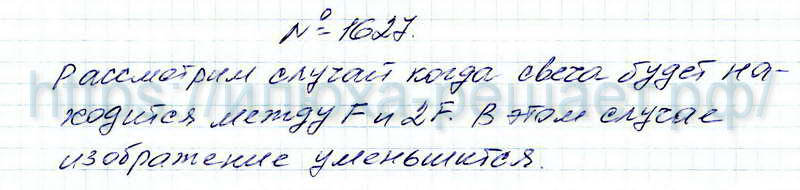 № 1627.
Рассмотрим случай когда свеча будет на-
ходится между F и 2F. В этом случае
изображение уменьшится.